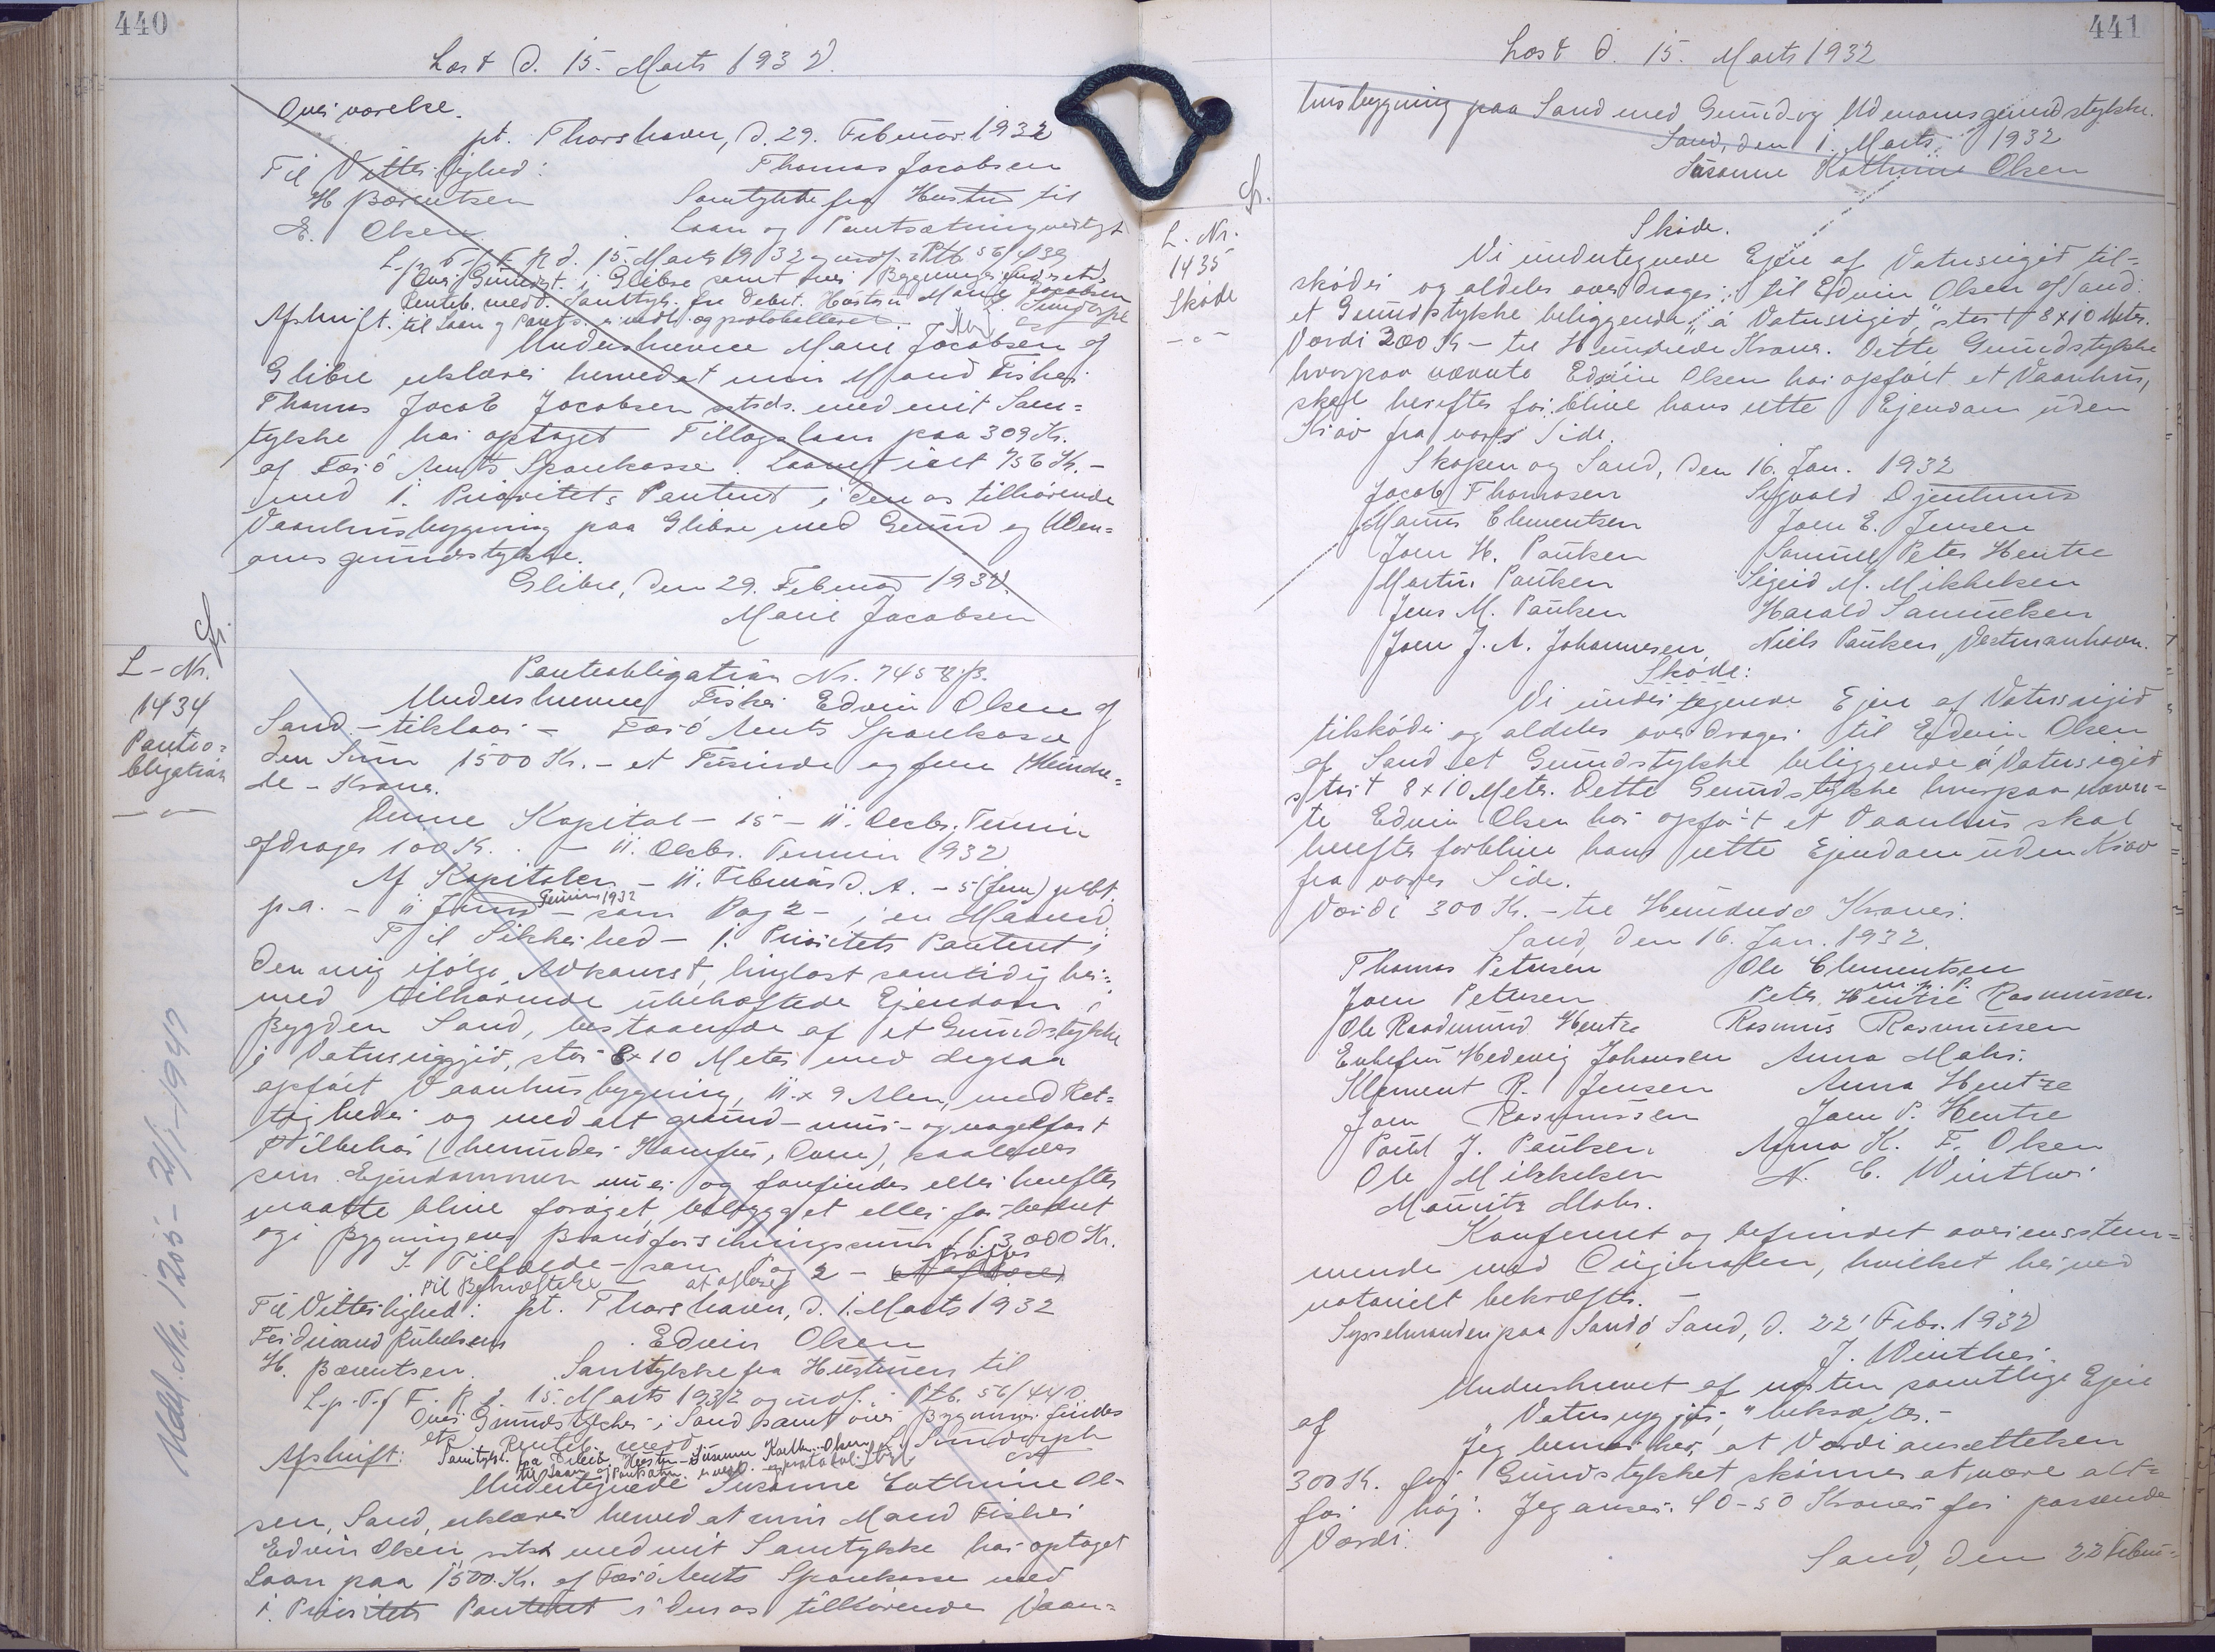 440
Læst d. 15. Marts 1932
Overværelse.
pt. Thorshavn, d. 29. Februar 1932
Til Vitterlighed:
Thomas Jacobsen
H Bærentsen
Samtykke fra Hustru til
E. Olsen
Laan og Pantsætning vedlagt
L.p.T.f F R d. 15. Marts 1932 og indf. i Ptb. 56/439
Over Grundst. i Glibre samt over Bygninger findes etc
Renteb. medd. Samtyk. fra Debit. Hustru Marie Jacobsen
Afskrift. til Laan og Pants. er vedl. og protokolleret.
Underskrevne Marie Jacobsen af
Glibre erklærer herved at min Mand Fisker
Thomas Jacob Jacobsen sstds. med mit Sam=
tykke har optaget Tillægslaan paa 309 Kr.
af Færø Amts Sparekasse. Laanet ialt 756 Kr. -
med 1. Prioritets Panteret i den os tilhørende
Vaanhusbygning paa Glibre med Grund og Uden=
omsgrundstykke.
Glibre, den 29. Februar 1932.
Marie Jacobsen
L-Nr.
1434
Panteo=
bligation
Panteobligation Nr. 7458 p.
Underskrevne Fisker Edvin Olsen af
Sand - tilklæri - Færø Amts Sparekasse
den Sum 1500 Kr. - et Tusinde og fem Hundre=
de - Kroner.
Denne Kapital - 15 - 11. Decbr. Termin
afdrages 100 Kr. - 11. Decbr. Termin 1932
Af Kapitalen - 11. Februar d. A. - 5 (fem) pCt.
p.a. - 11 Juni Termin 1932 - som Pag 2 - i en Maaned.
Til Sikkerhed - 1. Prioritets Panteret i
den mig ifølge Adkomst, tinglæst samtidig her=
med tilhørende ubehæftede Ejendom i
Bygden Sand, bestaaende af et Grundstykke
i Vatnsiggjid, stor 8x10 Meter med degsaa
opført Vaanhusbygning, 11 x 9 Alen, med Ret=
tigheder og med alt grund- mur- og nagelfast
Tilbehør (herunder Komfur, Ovne), saaledes
som Ejendommen nu er og forefindes eller herefter
maatte blive forøget, bebygget eller forbedret
og i Bygningens Brandforsikringssum (3000 Kr.
I Tilfælde - som Pag 2 -
Til Bekræftelse
Til Vitterlighed: pt. Thorshavn, d. 1. Marts 1932
Edvin Olsen
H. Bærentsen.
Samtykke fra Hustruen til
L.p.T.f F. R d. 15. Marts 1932 og indf. i Ptb. 56/440.
Over Grundstykker i Sand samt over Bygninger findes
etc Renteb. medd
Afskrift:
Undertegnede Susanne Cathrine Ol-
sen, Sand, erklærer herved at min Mand Fisker
Edvin Olsen, sstds med mit Samtykke har optaget
Laan paa 1500 Kr. af Færø Amts Sparekasse med
1. Prioritets Panteret i den os tilhørende Vaan=
441
Læst d. 15. Marts 1932
husbygning paa Sand med Grund og Udenomsgrundstykke.
Sand, den 1. Marts 1932
Susanne Kathrine Olsen
L. Nr.
1435
Skøde
Skøde.
Vi undertegnede Ejere af Vatnsigid, til=
skøder og aldeles overdrager til Edvin Olsen af Sand
et Grundstykke beliggende „á Vatnsigid," stort 8x10 Meter.
Værdi 300 Kr - tre Hundrede Kroner. Dette Grundstykke
hvorpaa nævnte Edvin Olsen har opført et Vaanhus,
skal herefter forblive hans rette Ejendom uden
Krav fra vores Side.
Skopen og Sand, den 16. Jan. 1932
Jacob Thomasen
Sigvald Djurhuus
Marius Clementsen
Joen E. Jensen
Joen H. Poulsen
Samuel Peter Hentze
Martin Poulsen
Sigrid M. Mikkelsen
Jens M. Poulsen
Harald Samuelsen
Joen J. A. Johannesen
Niels Poulsen, Vestmanhavn.
Skøde:
Vi undertegnede Ejere af Vatnsigid
tilskøder og aldeles overdrager til Edvin Olsen
af Sand et Grundstykke beliggende á Vatnsigid
stort 8x10 Meter. Dette Grundstykke hvorpaa nævn=
te Edvin Olsen har opført et Vaanhus skal
herefter forblive hans rette Ejendom uden Krav
fra vores Side.
Værdi 300 Kr. - tre Hundrede Kroner.
Sand, den 16. Jan. 1932.
Thomas Petersen
Ole Clementsen
m. p. P.
Joen Petersen
Peter Hentze Rasmussen.
Ole Raadmund Hentze
Rasmus Rasmussen
Enkefru Hedevig Johansen
Anna Mohr.
Klement R. Jensen
Anna Hentze
Joen Rasmussen
Joen P. Hentze
Poul J. Poulsen
Anna K. F. Olsen
Ole Mikkelsen
N. C. Winther
Mouritz Mohr.
Konfereret og befundet overensstem=
mende med Originalen, hvilket herved
notarielt bekræftes. -
Sysselmanden paa Sandø, Sand, d. 22' Febr. 1932
J. Winther.
Underskrevet af næsten samtlige Ejere
af „Vatnsiggjit," bekræftes. -
Jeg bemærker, at Værdiansættelsen
300 Kr. for Grundstykket skønnes at være alt=
for høj. Jeg anser 40-50 Kroner for passende
Værdi.
Sand, den 22 Febru=
Mdl. Nr. 1205 - 2/1-1942